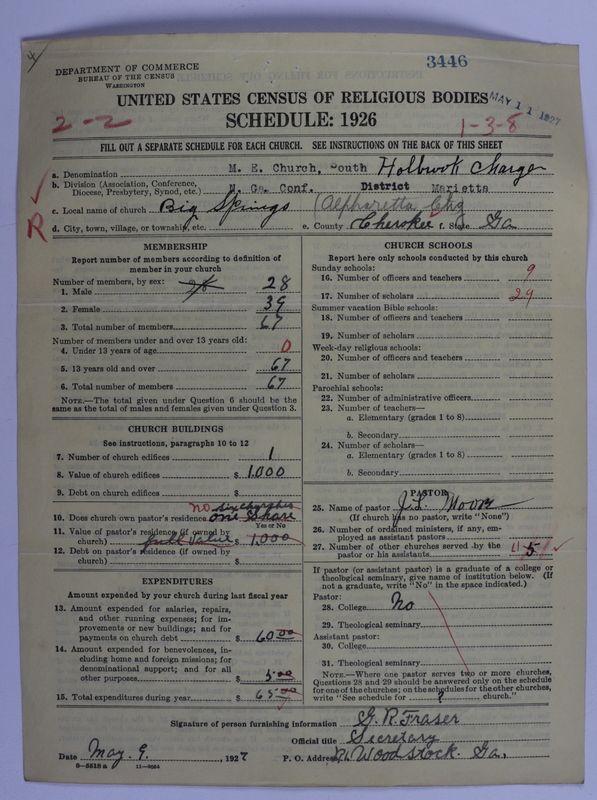 4
3446
DEPARTMENT OF COMMERCE
BUREAU OF THE CENSUS
WASHINGTON
MAY 11 1927
UNITED STATES CENSUS OF RELIGIOUS BODIES
SCHEDULE: 1926
2-2
1-3-8
FILL OUT A SEPARATE SCHEDULE FOR EACH CHURCH. SEE INSTRUCTIONS ON THE BACK OF THIS SHEET
a. Denomination M. E. Church, South Holbrook Charge
b. Division (Association, Conference, Diocese, Presbytery, Synod, etc.) N. Ga. Conf. District Marietta
R
c. Local name of church Big Springs (Alpharetta Chg
d. City, town, village, or township, etc. e. County Cherokee f. State Ga
MEMBERSHIP
Report number of members according to definition of
member in your church
Number of members, by sex:
1. Male 28 28
2. Female 39
3. Total number of members 67
Number of members under and over 13 years old:
4. Under 13 years of age 0
5. 13 years old and over 67
6. Total number of members 67
NOTE.—The total given under Question 6 should be the
same as the total of males and females given under Question 3.
CHURCH BUILDINGS
See instructions, paragraphs 10 to 12
7. Number of church edifices 1
8. Value of church edifices $ 1,000
9. Debt on church edifices $
no six churches
10. Does church own pastor's residence one share
Yes or No
11. Value of pastor's residence (if owned by
church) full value $ 1,000
12. Debt on pastor's residence (if owned by
church) $
EXPENDITURES
Amount expended by your church during last fiscal year
13. Amount expended for salaries, repairs,
and other running expenses; for im-
provements or new buildings; and for
payments on church debt $ 60.00
14. Amount expended for benevolences, in-
cluding home and foreign missions; for
denominational support; and for all
other purposes $ 5.00
15. Total expenditures during year $ 65.00
CHURCH SCHOOLS
Report here only schools conducted by this church
Sunday schools:
16. Number of officers and teachers 9
17. Number of scholars 29
Summer vacation Bible schools:
18. Number of officers and teachers
19. Number of scholars
Week-day religious schools:
20. Number of officers and teachers
21. Number of scholars
Parochial schools:
22. Number of administrative officers
23. Number of teachers—
a. Elementary (grades 1 to 8)
b. Secondary
24. Number of scholars—
a. Elementary (grades 1 to 8)
b. Secondary
PASTOR
25. Name of pastor J. L. Moore
(If church has no pastor, write "None")
26. Number of ordained ministers, if any, em-
ployed as assistant pastors
27. Number of other churches served by the
pastor or his assistants 5
If pastor (or assistant pastor) is a graduate of a college or
theological seminary, give name of institution below. (If
not a graduate, write "No" in the space indicated.)
Pastor:
28. College No
29. Theological seminary
Assistant pastor:
30. College
31. Theological seminary
NOTE.—Where one pastor serves two or more churches,
Questions 28 and 29 should be answered only on the schedule
for one of the churches; on the schedules for the other churches,
write "See schedule for ? church."
Signature of person furnishing information G. R. Fraser
Official title Secretary
Date May 9, 1927 P. O. Address Woodstock, Ga,
8-5518 a